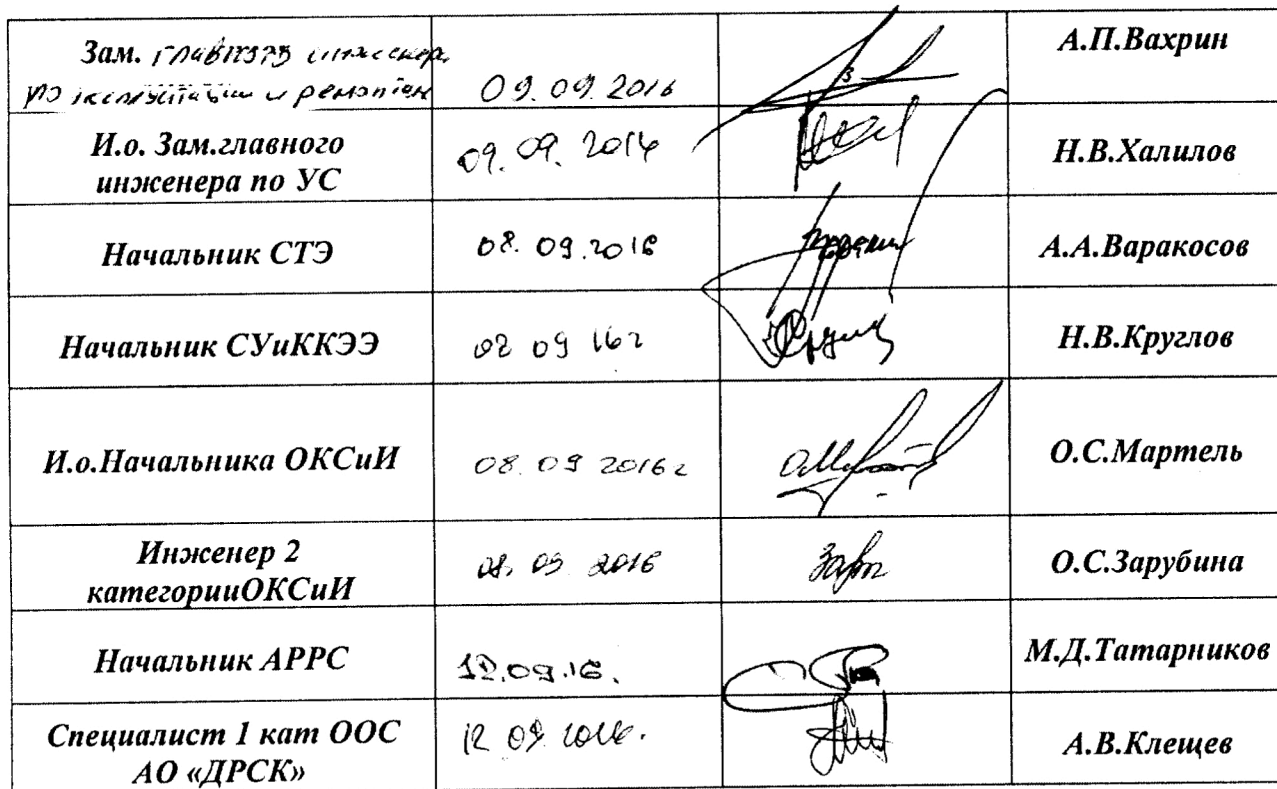 Зам. главного инженера
по эксплуатации и ремонтам
09.09.2016
А.П.Вахрин
И.о. Зам.главного
инженера по УС
09.09.2016
Н.В.Халилов
Начальник СТЭ
08.09.2016
А.А.Варакосов
Начальник СУиККЭЭ
09 16г
Н.В.Круглов
И.о.Начальника ОКСиИ
08.09 2016г
О.С.Мартель
Инженер 2
категорииОКСиИ
08.09 2016
О.С.Зарубина
Начальник АРРС
12.09.16.
М.Д.Татарников
Специалист 1 кат ООС
АО «ДРСК»
12 09 2016.
А.В.Клещев